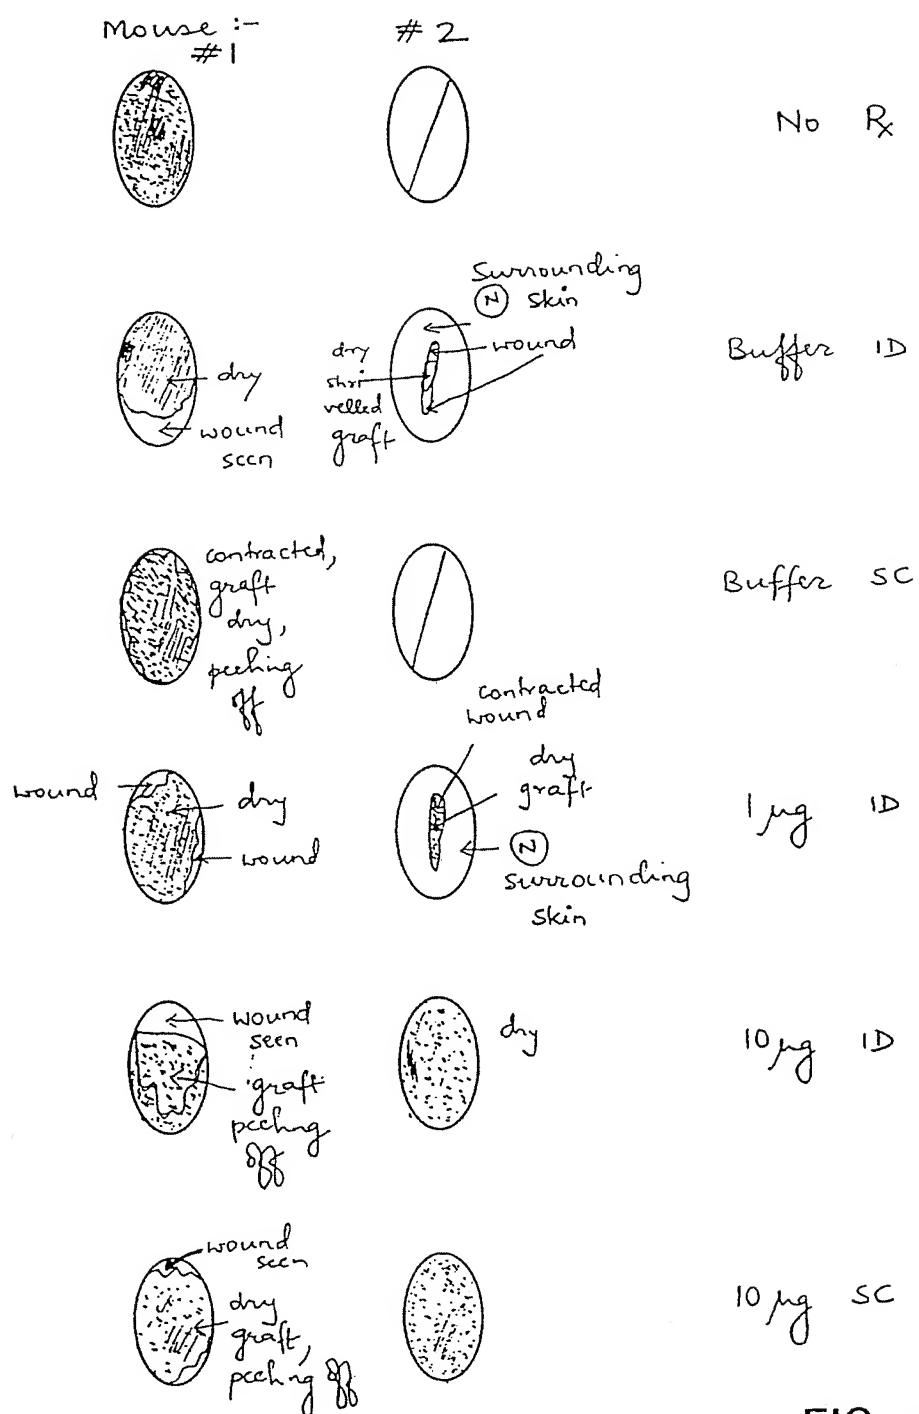 Mouse :-
#1 #2
No Rx
Surrounding
N skin
wound
dry
shri
velled
graft
dry
wound
seen
Buffer ID
contracted,
graft
dry,
peeling
off
Buffer SC
contracted
wound
dry
graft
N
surrounding
skin
wound
dry
wound
1 µg ID
wound
seen
graft
peeling
off
dry
10 µg ID
wound
seen
dry
graft,
peeling off
10 µg SC